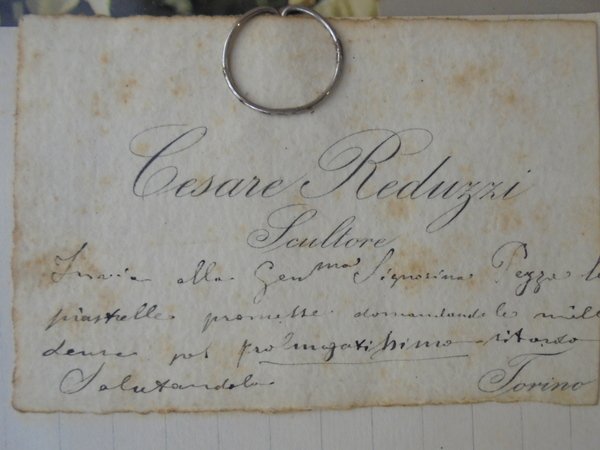 Cesare Reduzzi
Scultore
Invia alla Gen.ma Signorina Pezza le
piastrelle promesse domandandole mille
scuse pel prolungatissimo ritardo
Salutandola
Torino